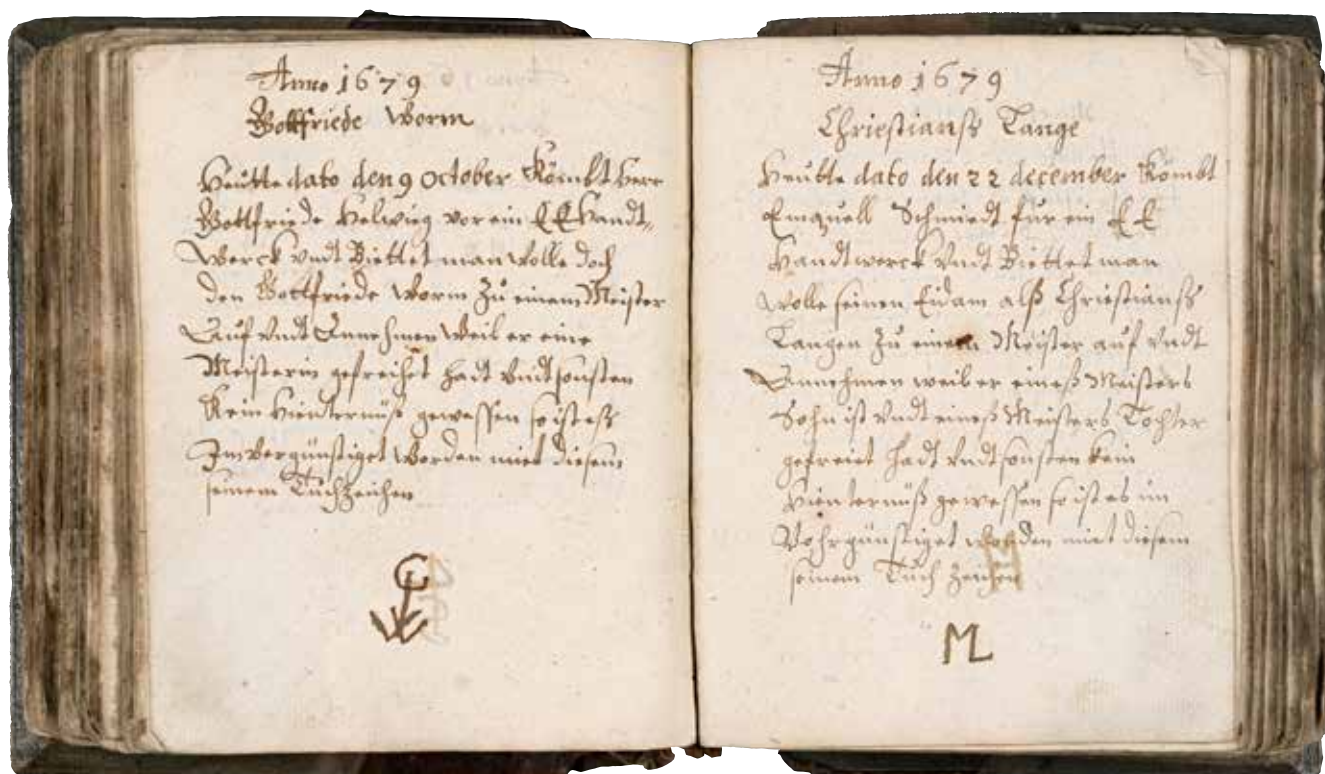 Anno 1679
Gottfriede Worm
Heutte dato den 9 October Kömbt Herr
Gottfriede Helwieg vor ein EE Handt„
Werck undt Biettet man Wolle doch
den Gottfriede Worm Zu einem Meister
Auf undt Annehmen Weil er eine
Meisterin gefreihet hadt undt sonsten
Kein Hienternüß gewessen so ist eß
Im Vergünstiget Worden miet diesem
seinem Tuchzeichen
Anno 1679
Christianß Lange
Heutte dato den 22 december Kömbt
Schmiedt fur ein EE
Handtwerck Undt Biettet man
Wolle seinen Eidam alß Christianß
Langen Zu einem Meister auf undt
Annehmen weil er eineß Meisters
Sohn ist undt eineß Meisters Tochter
gefreiet hadt undt sonsten kein
Hienternüß gewessen so ist es im
Vohrgünstiget Worden miet diesem
seinem Tuch Zeichen
ML